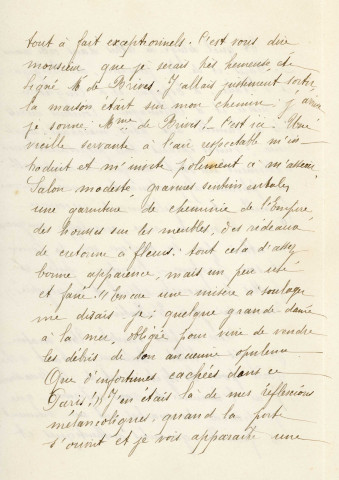 tout à fait exceptionnels. C'est vous dire
monsieur que je serais très heureuse de
Signé Mme de Brives. J'allais justement sortir
la maison était sur mon chemin. J'arrive
je sonne: Mme de Brives! _ C'est ici. Une
vieille servante à l'air respectable m'in-
troduit et m'invite poliment à m'asseoir
Salon modeste, gravures sentimentales,
une garniture de cheminée de l'Empire
des housses sur les meubles, des rideaux
de cretonne à fleurs: tout cela d'assez
bonne apparence, mais un peu usé
et fané. "Encore une misère à soulager
me disais-je; quelque grande dame
à la mer, obligée pour vivre de vendre
les débris de son ancienne opulence
Que d'infortunes cachées dans ce
Paris!" J'en étais là de mes réflexions
mélancoliques, quand la porte
s'ouvrit et je vois apparaître une